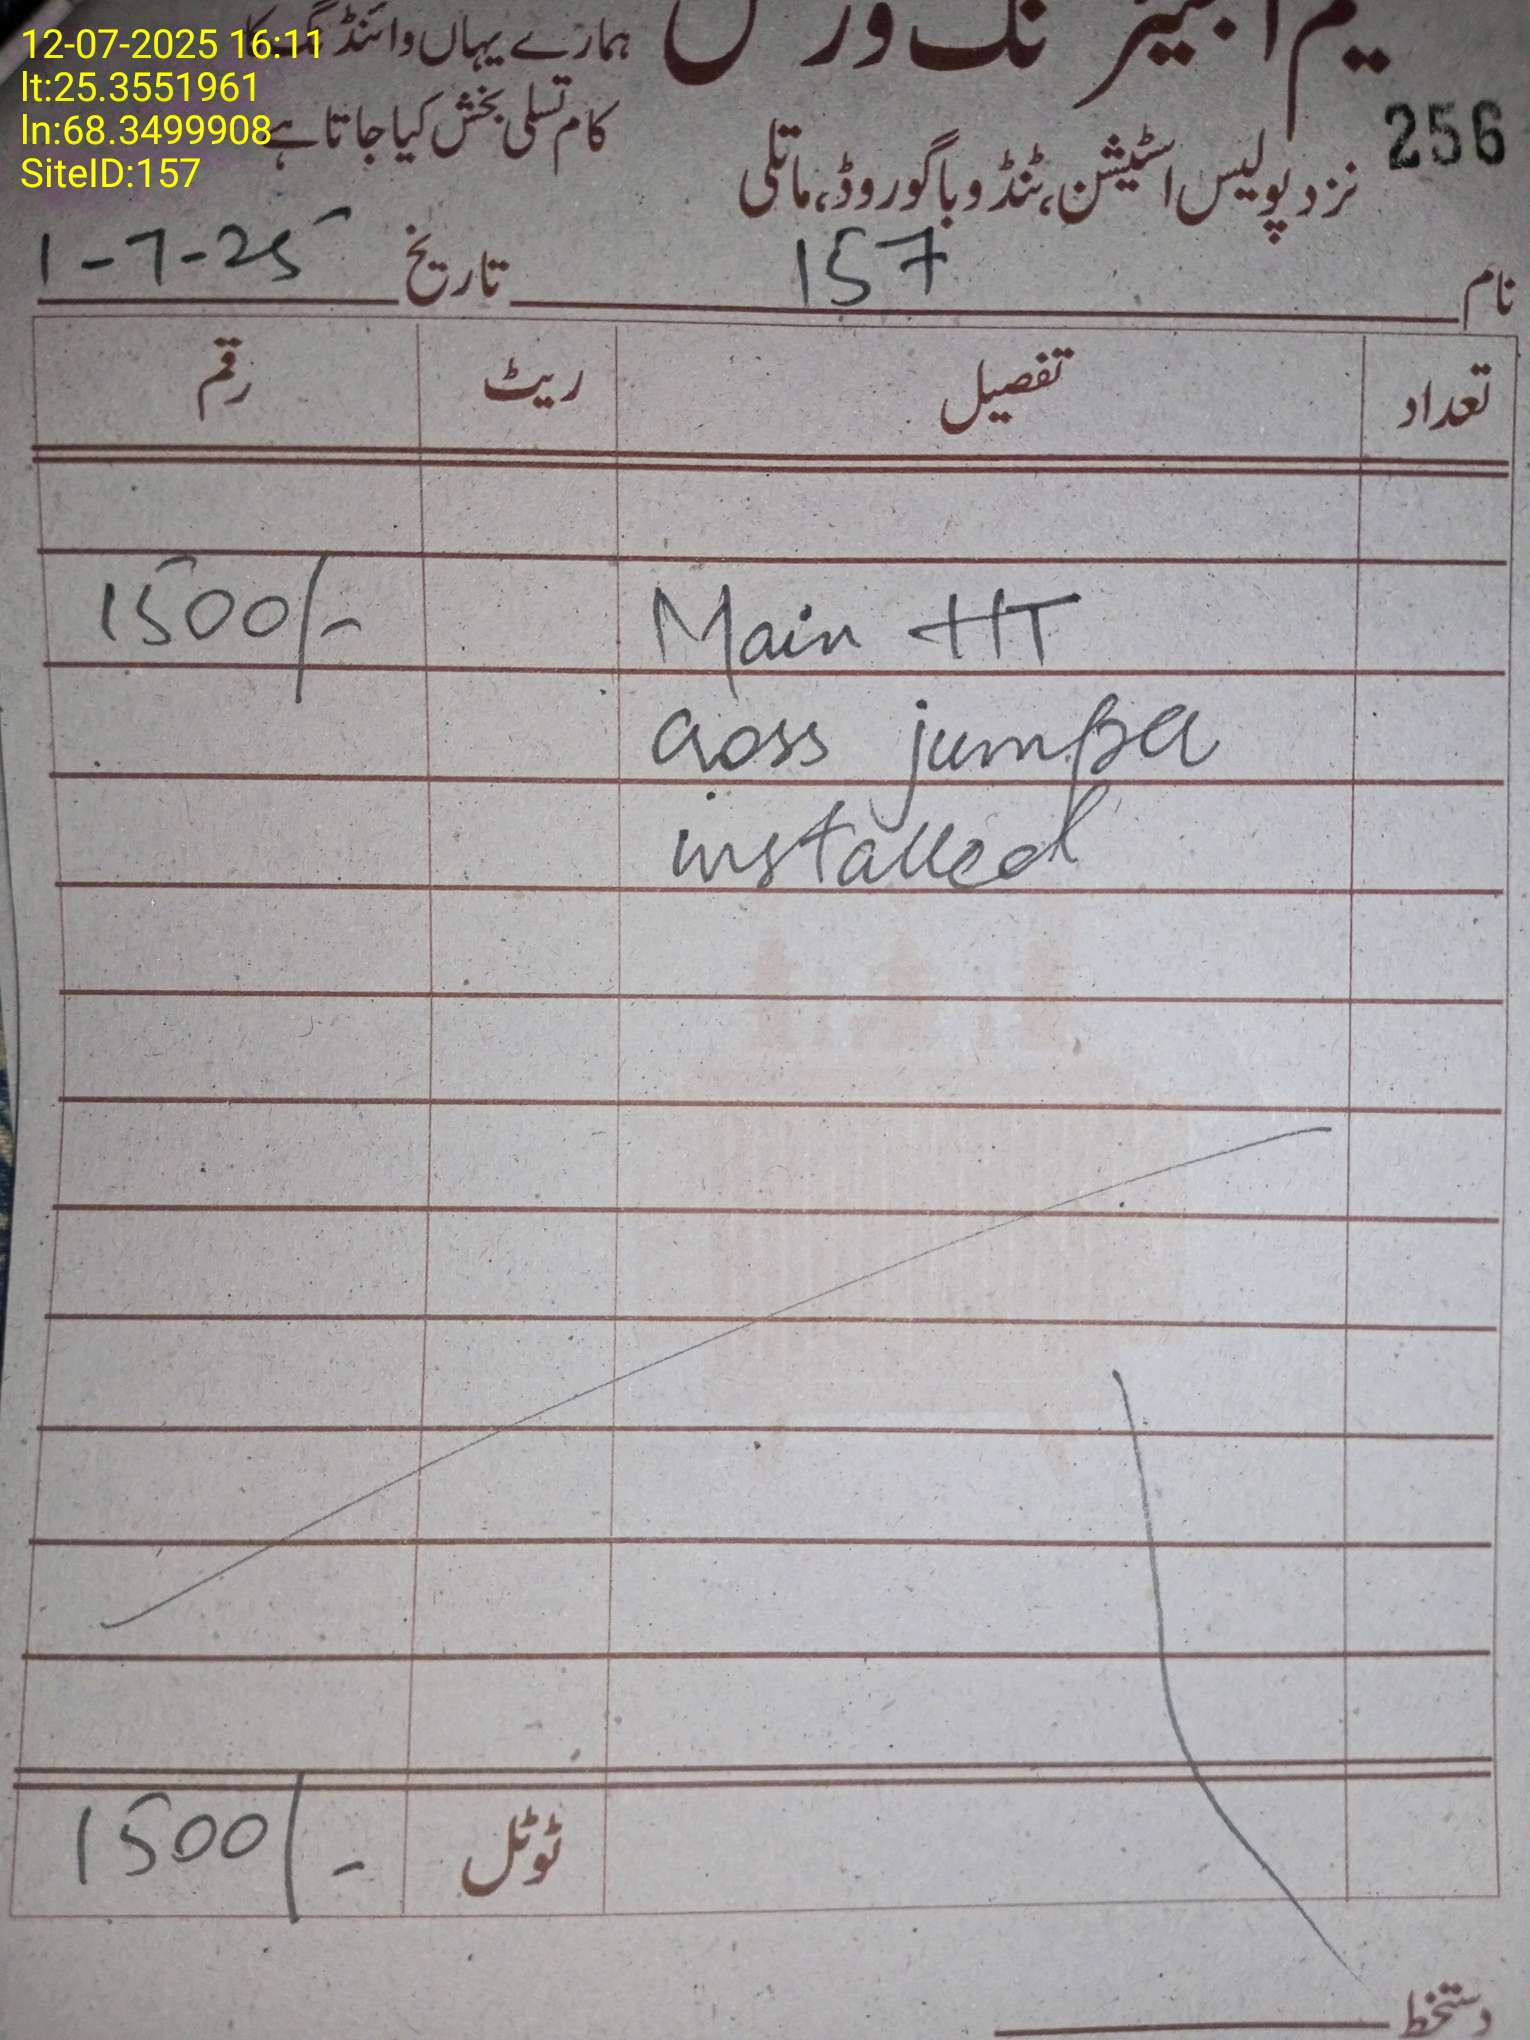 12-07-2025 16:11
lt:25.3551961
ln:68.3499908
SiteID:157
ہمارے یہاں وائنڈنگ کا
کام تسلی بخش کیا جاتا ہے
نزد پولیس اسٹیشن، ٹنڈو باگو روڈ، ماتلی
256
نام 157 تاریخ 1-7-25
تعداد تفصیل ریٹ رقم
Main HT 1500/-
cross jumper
installed
ٹوٹل 1500/-
دستخط